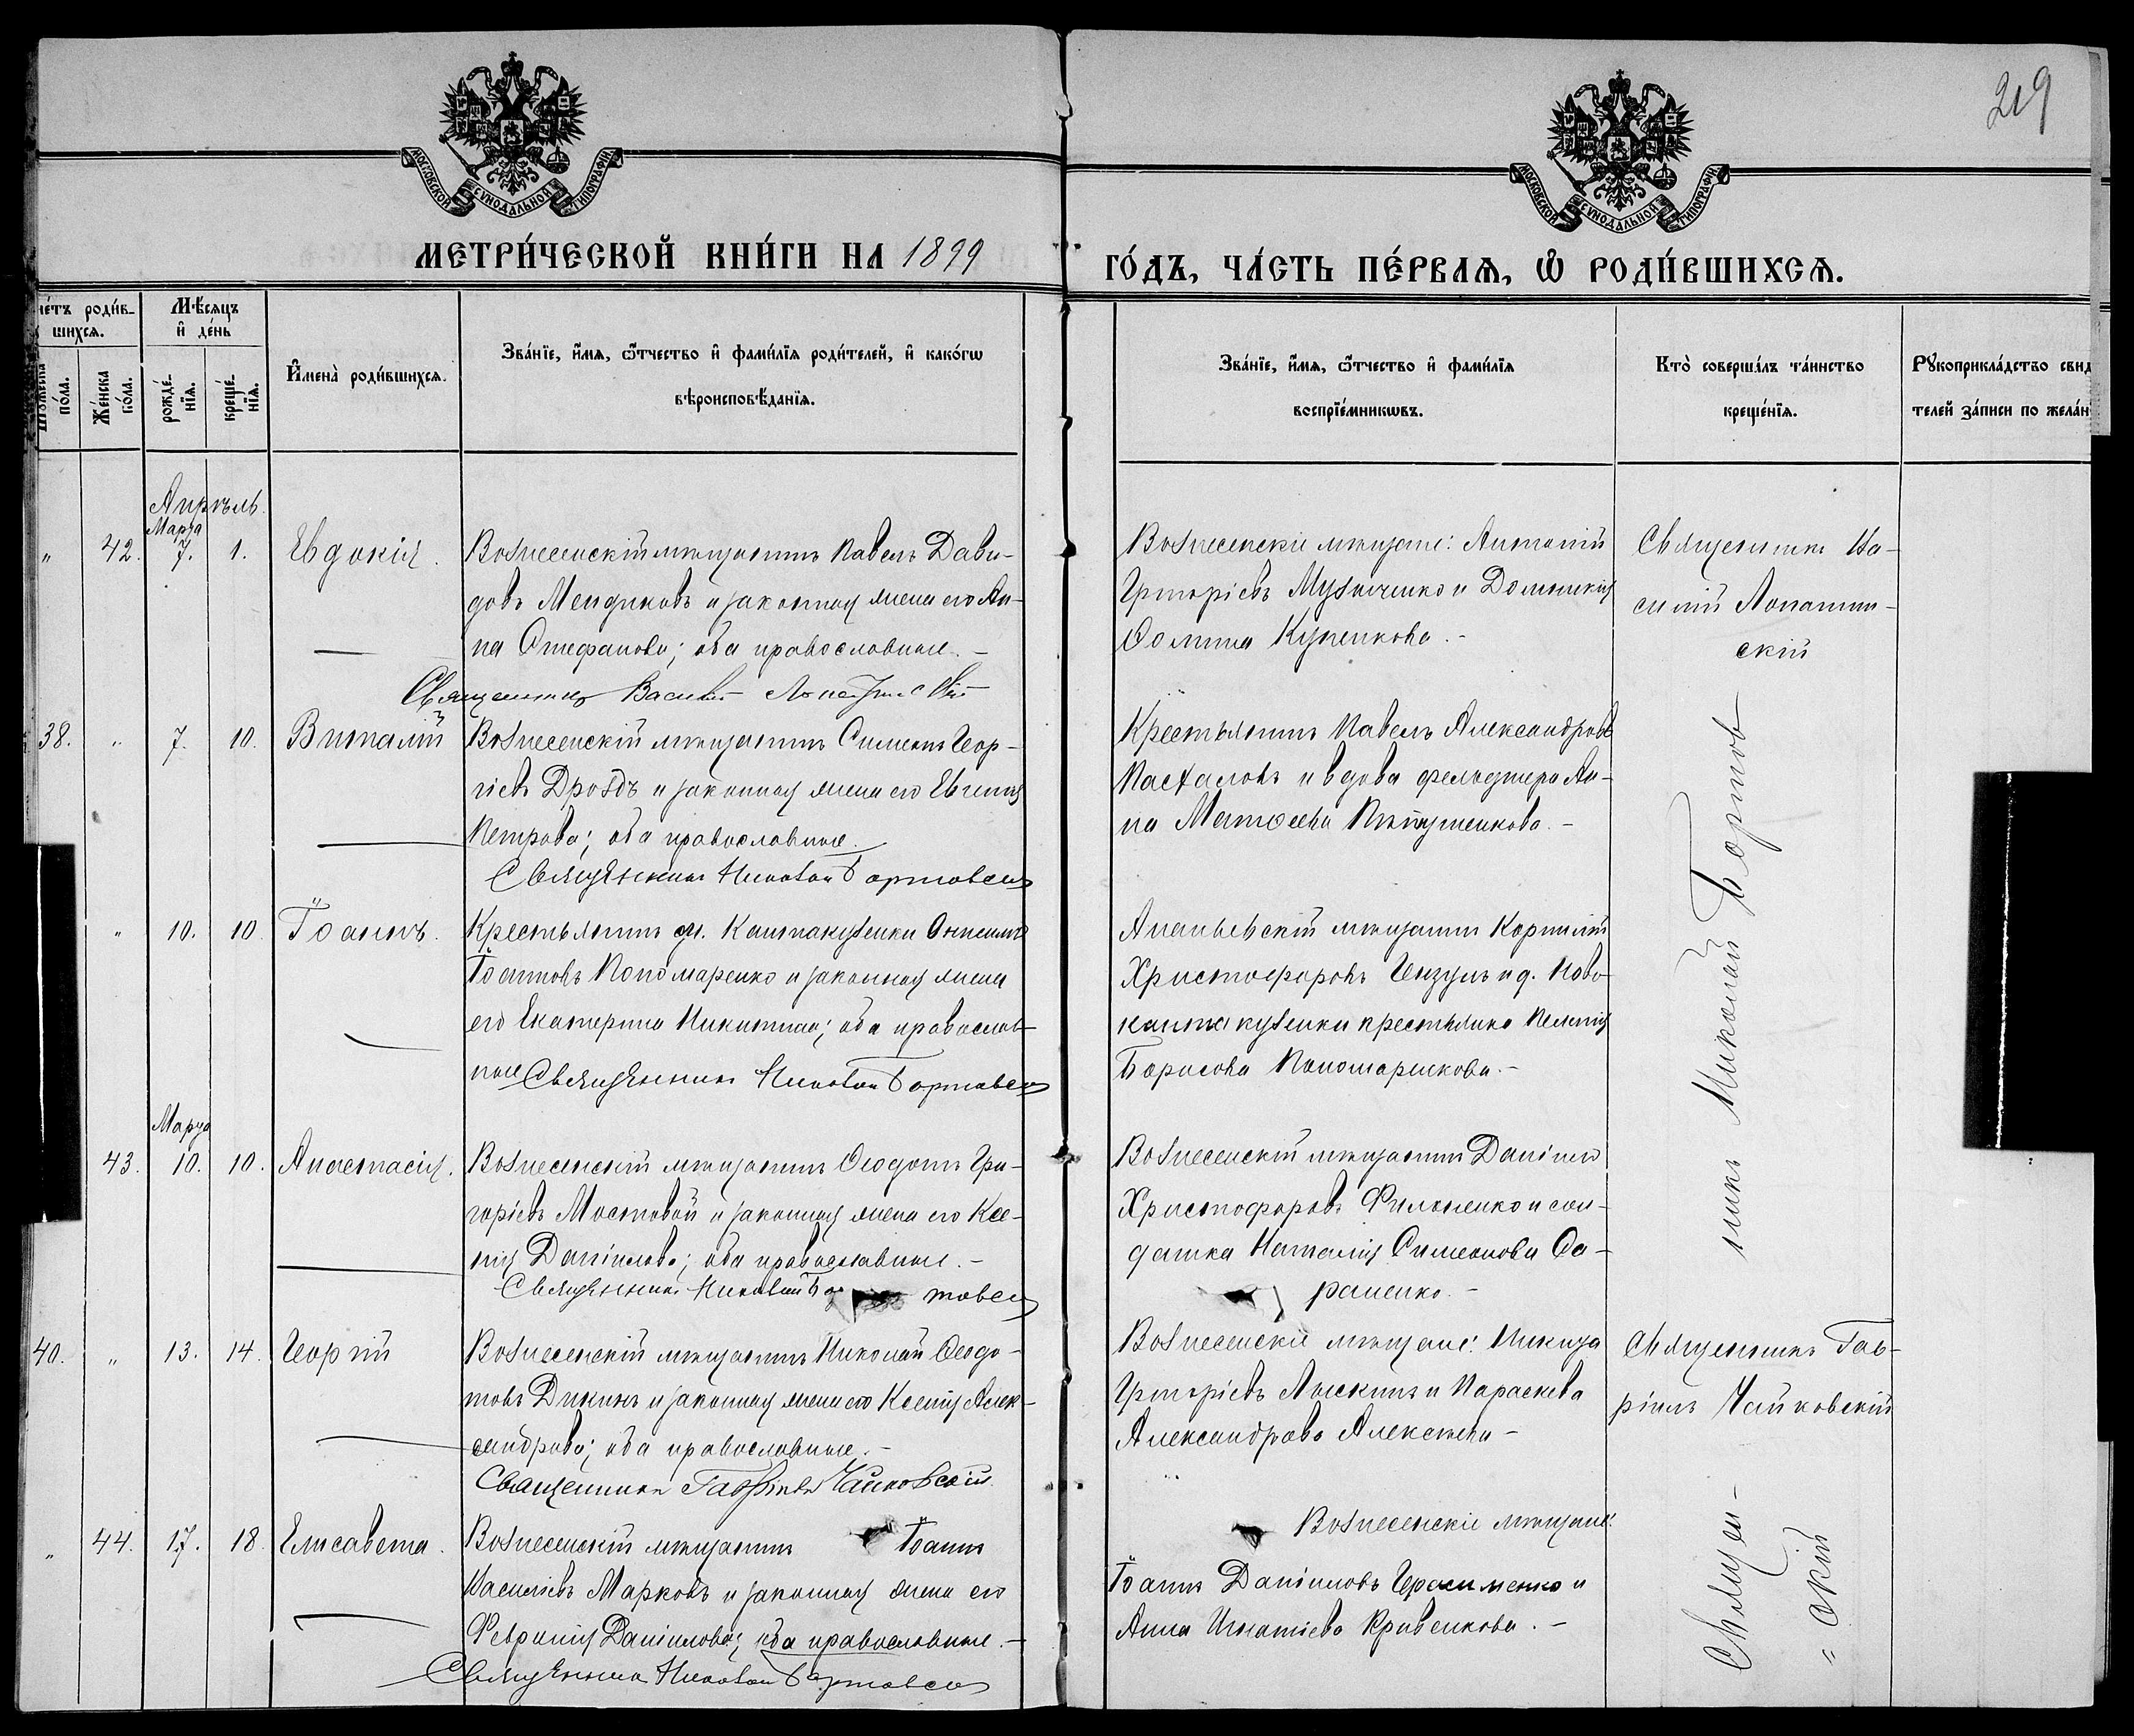 219
МОСКОВСКОЙ СѴНОДАЛЬНОЙ ТИПОГРАФІИ.
МОСКОВСКОЙ СѴНОДАЛЬНОЙ ТИПОГРАФІИ.
МЕТРИ́ЧЕСКОЙ КНИ́ГИ НА 1899
ГО́ДЪ, ЧА́СТЬ ПЕ́РВАѦ, Ѡ҆ РОДИ́ВШИХСѦ.
че́тъ роди́в-
шихсѧ.
Мѣ́сѧцъ
и҆ де́нь
по́ла.
Же́нска
по́ла.
рожде́-
нїѧ.
креще́-
нїѧ.
И҆мена̀ роди́вшихсѧ.
Зва́нїе, и҆́мѧ, ѻ҆́тчество и҆ фами́лїѧ роди́телей, и҆ како́гѡ
вѣроисповѣ́данїѧ.
Зва́нїе, и҆́мѧ, ѻ҆́тчество и҆ фами́лїѧ
воспрїе́мникѡвъ.
Кто̀ соверша́лъ та́инство
креще́нїѧ.
Рꙋкоприкла́дство свид
телей за́писи по жела́н
Апрѣль.
Марта
" 42. 7. 1. Евдокія.
Вознесенскій мѣщанинъ Павелъ Дави-
довъ Мендиковъ и законная жена его Ан-
на Стефанова; оба православные. -
Священникъ Василій Лопатинскій
Вознесенскіе мѣщане: Антоній
Григорієвъ Музыченко и Домникія
Ѳомина Купенкова. -
Священникъ Ва-
силій Лопатин-
скій
38. " 7. 10. Виталій
Вознесенскій мѣщанинъ Симеонъ Геор-
гіевъ Дроздъ и законная жена его Евгенія
Петрова; оба православные.
Священникъ Николай Бортовск
Крестьянинъ Павелъ Александровъ
Пасхаловъ и вдова фельдшера Ан-
на Матѳеева
" 10. 10. Іоаннъ.
Крестьянинъ д. Кантакузенки Онисимъ
Іоанновъ Пономаренко и законная жена
его Екатерина Никитина; оба православ-
ные Священникъ Николай Бортовск
Ананьевскій мѣщанинъ Корнилій
Христофоровъ Гензулъ и д. Ново-
кантакузенки крестьянка Пелагія
Борисова Пономаренкова. -
Марта
43. 10. 10. Анастасія.
Вознесенскій мѣщанинъ Ѳеодотъ Гри-
горіевъ Мостовой и законная жена его Ксе-
нія Даніилова; оба православные. -
Священникъ Николай Бо товск
Вознесенскій мѣщанинъ Даніилъ
Христофоровъ Филоненко и сол-
датка Наталія Симеонова Са-
раненко. -
40. " 13. 14. Георгій
Вознесенскій мѣщанинъ Николай Ѳеодо-
товъ Дикинъ и законная жена его Ксенія Алек-
сандрова; оба православные. -
Священникъ Гавріилъ Чайковскій
Вознесенскіе мѣщане: Никита
Григорієвъ Лыскинъ и Параскева
Александрова Алексѣева -
Священникъ Гав-
ріилъ Чайковскій
" 44. 17. 18. Елисавета.
Вознесенскій мѣщанинъ Іоаннъ
Василіевъ Марковъ и законная жена его
Февронія Даніилова; оба православные. -
Священникъ Николай Бортовск
Вознесенскіе мѣщане:
Іоаннъ Даніиловъ Герасименко и
Анна Игнатіева Кривенкова. -
Священ-
никъ Николай Бортов-
" скій